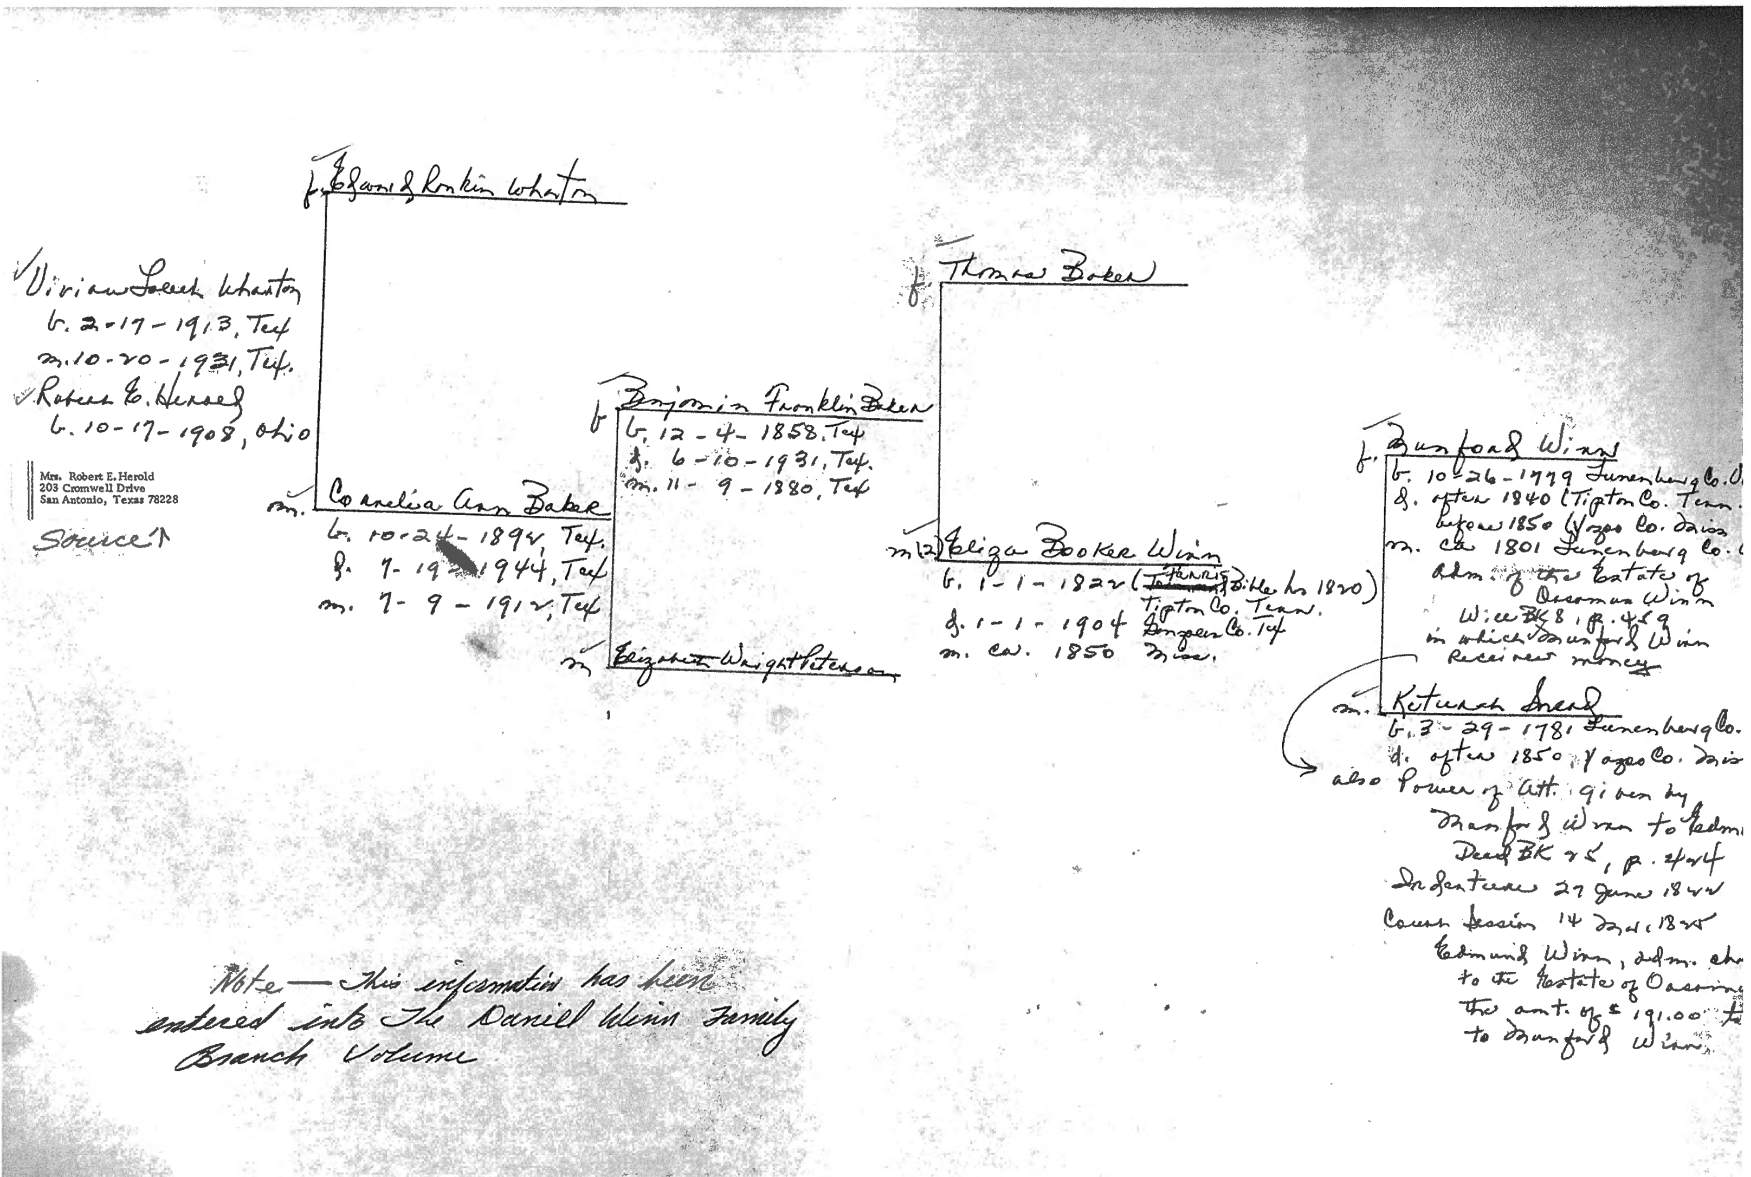 f. Edward Rankin Wharton
Vivian Wharton
b. 2-17-1913, Tex
m. 10-20-1931, Tex.
Robert E. Herold
b. 10-17-1908, Ohio
Mrs. Robert E. Herold
203 Cromwell Drive
San Antonio, Texas 78228
Source ↑
m. Cornelia Ann Baker
b. 10-24-1892, Tex.
d. 7-19-1944, Tex
m. 7-9-1912, Tex
f Benjamin Franklin Baker
b. 12-4-1858, Tex
d. 6-10-1931, Tex.
m. 11-9-1880, Tex
m Elizabeth Wright Peterson
f. Thomas Baker
m(2) Eliza Booker Winn
b. 1-1-1822 (Farris Bible has 1820)
Tipton Co. Tenn.
d. 1-1-1904 Gonzales Co. Tex
m. ca. 1850 Miss.
f. Munford Winn
b. 10-26-1779 Lunenburg Co.
d. after 1840 (Tipton Co. Tenn.
before 1850 (Yazoo Co. Miss
m. ca 1801 Lunenburg Co.
Adm. of the Estate of
Orsamus Winn
Will BK 8, p. 459
in which Munford Winn
receives money
m. Keturah
b. 3-29-1781 Lunenburg Co.
d. after 1850, Yazoo Co. Mis
also Power of Att. given by
Munford Winn to Edm
Deed BK 25, p. 424
Indenture 27 June 1822
Court Session 14 1825
Edmund Winn, adm.
to the Estate of
the amt. of $191.00
to Munford Winn.
Note — This information has been
entered into The Daniel Winn Family
Branch Volume